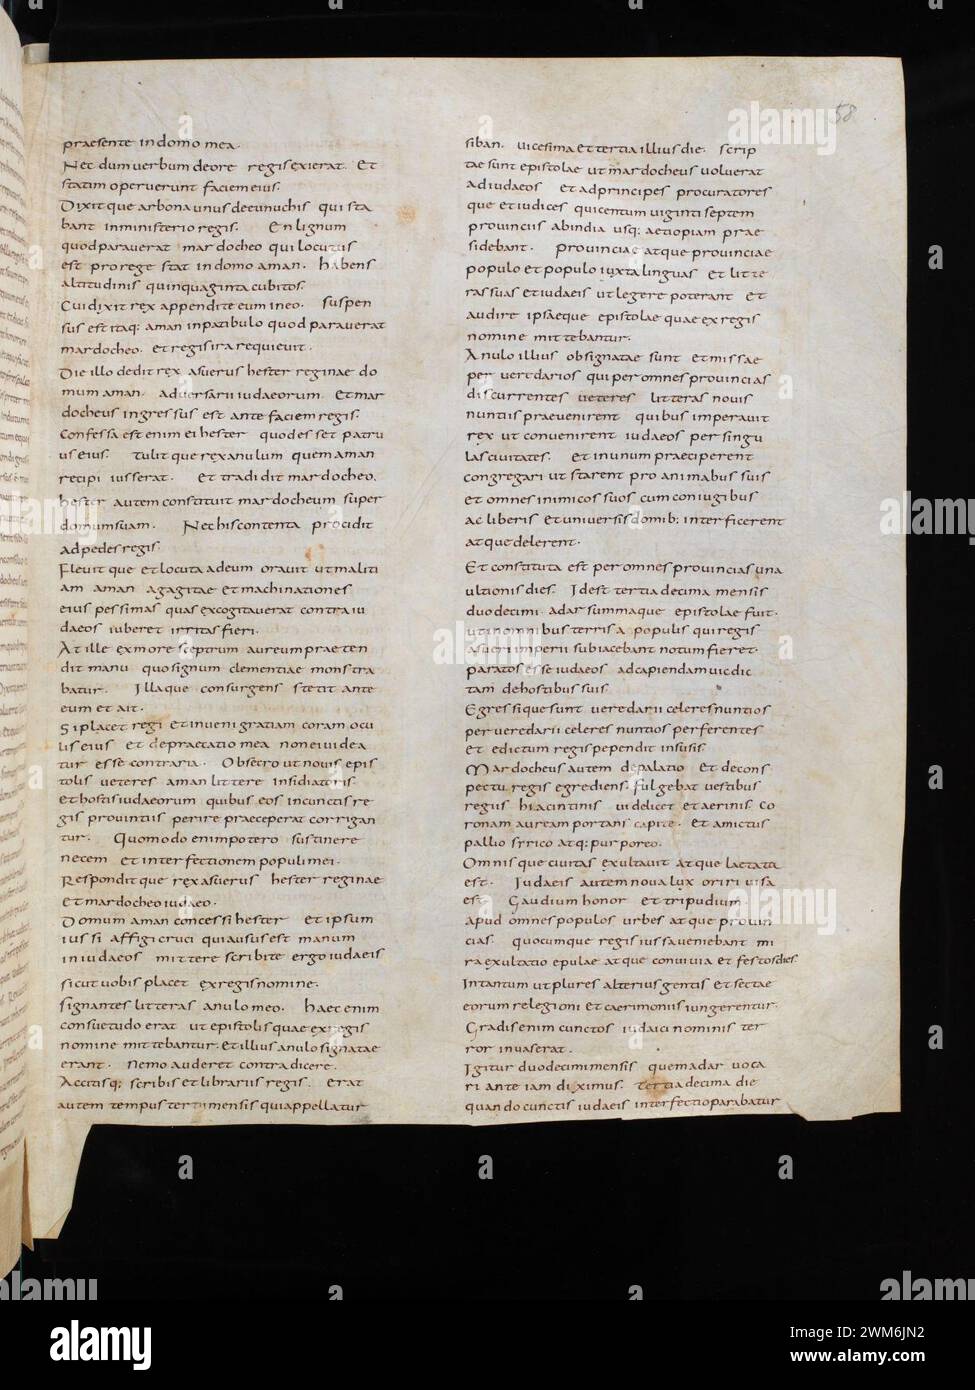 58
praesente in domo mea.
Nec dum verbum de ore regis exierat. Et
statim operuerunt faciem eius.
Dixitque arbona unus de eunuchis qui sta
bant in ministerio regis. En lignum
quod paraverat mardocheo qui locutus
est pro rege stat in domo aman. habens
altitudinis quinquaginta cubitos.
Cui dixit rex appendite eum in eo. suspen
sus est itaq; aman in patibulo quod paraverat
mardocheo. et regis ira requievit.
Die illo dedit rex asuerus hester reginae do
mum aman. adversarii iudaeorum. Et mar
docheus ingressus est ante faciem regis.
Confessa est enim ei hester quod esset patru
us eius. tulitque rex anulum quem aman
recipi iusserat. Et tradidit mardocheo.
hester autem constituit mardocheum super
domum suam. Nec his contenta procidit
ad pedes regis.
Flevitque et locuta ad eum oravit ut maliti
am aman agagitae et machinationes
eius pessimas quas excogitaverat contra iu
daeos iuberet irritas fieri.
At ille ex more sceptrum aureum praeten
dit manu quo signum clementiae monstra
batur. Illaque consurgens stetit ante
eum et ait.
Si placet regi et inveni gratiam coram ocu
lis eius et depraectatio mea non ei videa
tur esse contraria. Obsecro ut novis epis
tolis veteres aman littere insidiatoris
et hostis iudaeorum quibus eos in cunctis re
gis provintiis perire praeceperat corrigan
tur. Quomodo enim potero sustinere
necem et interfectionem populi mei.
Responditque rex asuerus hester reginae
et mardocheo iudaeo.
Domum aman concessi hester et ipsum
iussi affigi cruci qui ausus est manum
in iudaeos mittere scribite ergo iudaeis
sicut vobis placet ex regis nomine.
signantes litteras anulo meo. haec enim
consuetudo erat ut epistolis quae ex regis
nomine mittebantur. et illius anulo signatae
erant. nemo auderet contradicere.
Accitisq; scribis et librariis regis. erat
autem tempus tertii mensis qui appellatur
siban. vicesima et tertia illius die. scrip
tae sunt epistolae ut mardocheus voluerat
ad iudaeos et ad principes procuratores
que et iudices qui centum viginti septem
provinciis ab india usq; aetiopiam prae
sidebant. provinciae atque provinciae
populo et populo iuxta linguas et litte
ras suas et iudaeis ut legere poterant et
audire ipsaeque epistolae quae ex regis
nomine mittebantur.
Anulo illius obsignatae sunt et missae
per veredarios qui per omnes provincias
discurrentes veteres litteras novis
nuntiis praevenirent quibus imperavit
rex ut convenirent iudaeos per singu
las civitates. et in unum praeciperent
congregari ut starent pro animabus suis
et omnes inimicos suos cum coniugibus
ac liberis et universis domib; interficerent
atque delerent.
Et constituta est per omnes provincias una
ultionis dies. Id est tertia decima mensis
duodecimi. adar summaque epistolae fuit.
ut in omnibus terris a populis qui regis
asueri imperii subiacebant notum fieret.
paratos esse iudaeos ad capiendam vicdic
tam de hostibus suis.
Egressique sunt veredarii celeres nuntios
per veredarii celeres nuntios perferentes
et edictum regis pependit in susis.
Mardocheus autem de palatio et de cons
pectu regis egrediens. fulgebat vestibus
regiis hiacintinis videlicet et aerinis. co
ronam auream portans capite. et amictus
pallio sirico atq; purporeo.
Omnisque civitas exultavit atque laetata
est. Iudaeis autem nova lux oriri visa
est. Gaudium honor et tripudium.
apud omnes populos urbes atque provin
cias. quocumque regis iussa veniebant mi
ra exultatio epulae atque convivia et festos dies.
Intantum ut plures alterius gentis et sectae
eorum relegioni et caerimoniis iungerentur.
Gradis enim cunctos iudaici nominis ter
ror invaserat.
Igitur duodecimi mensis quem adar voca
ri ante iam diximus. tertia decima die
quando cunctis iudaeis interfectio parabatur
alamy
Image ID: 2WM6JN2
www.alamy.com